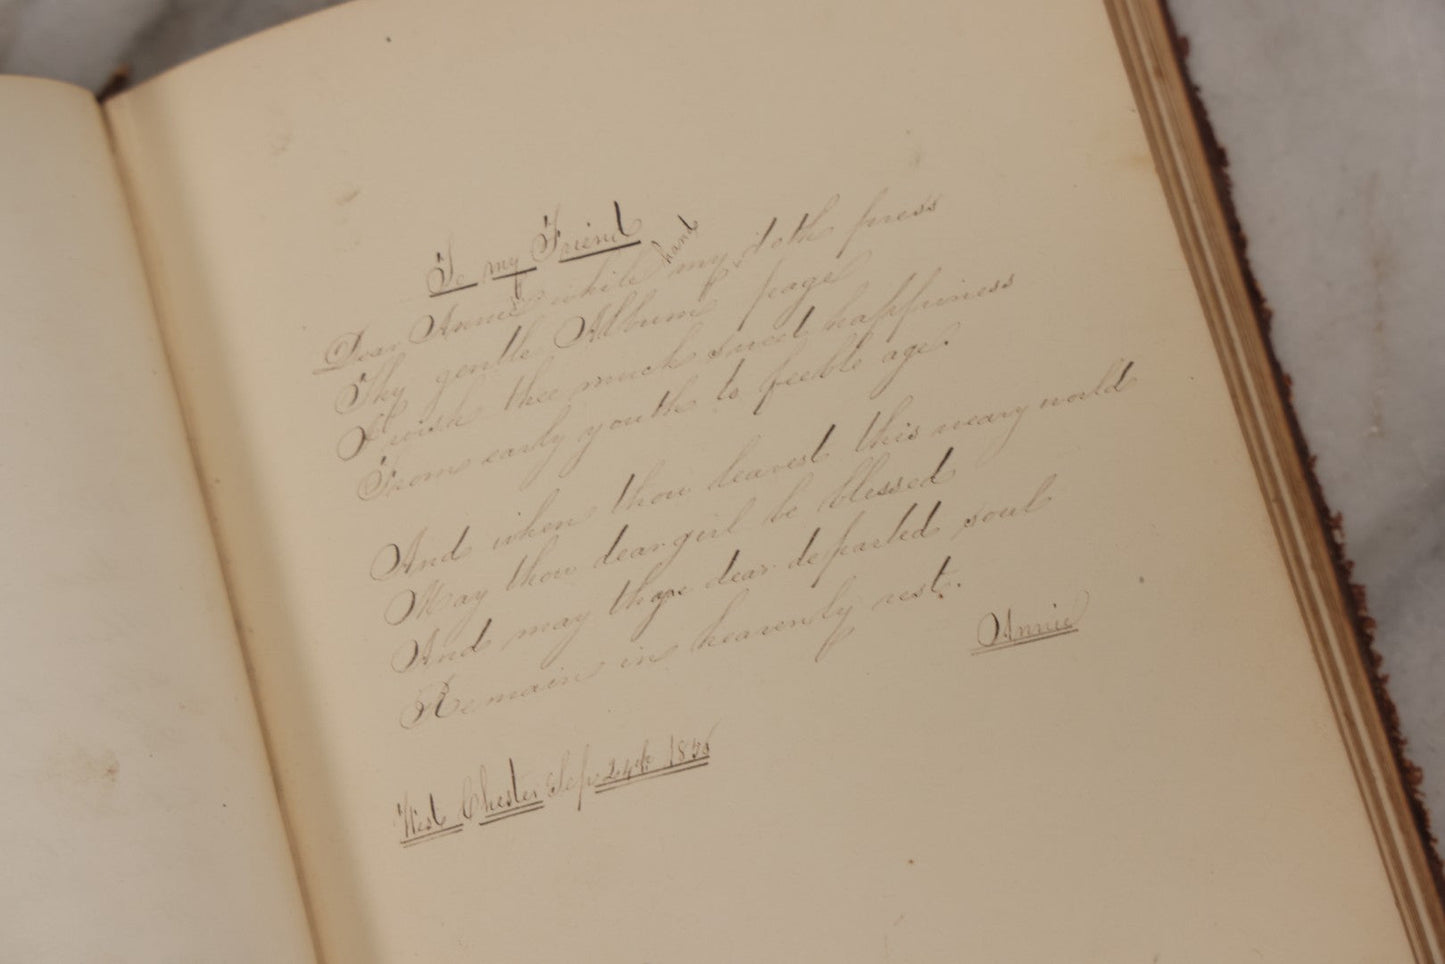 To my Friend
Dear Annie while my hand doth press
Thy gentle Album page
I wish thee much sweet happiness
From early youth to feeble age.
And when thou leavest this weary world
May thou dear girl be blessed
And may thy dear departed soul
Remain in heavenly rest.
Annie
West Chester Sep 24th 1856